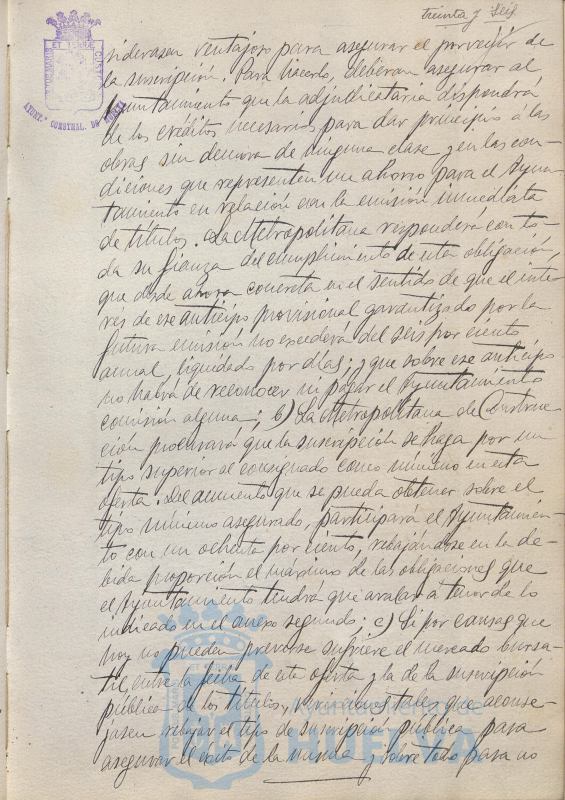 treinta y seis
siderasen ventajoso para asegurar el porvenir de
la suscripción. Para hacerlo, deberán asegurar al
Ayuntamiento que la adjudicataria dispondrá
de los créditos necesarios para dar principio á las
obras sin demora de ninguna clase y en las con-
diciones que representen un ahorro para el Ayun-
tamiento en relación con la emisión inmediata
de títulos. La Metropolitana responderá con to-
da su fianza del cumplimiento de esta obligación,
que desde ahora concreta en el sentido de que el inte-
rés de ese anticipo provisional garantizado por la
futura emisión no excederá del seis por ciento
anual, liquidado por días; y que sobre ese anticipo
no habrá de reconocer ni pagar el Ayuntamiento
comisión alguna; b) La Metropolitana de Construc-
ción procurará que la suscripción se haga por un
tipo superior al consignado como mínimo en esta
oferta. Del aumento que se pueda obtener sobre el
tipo mínimo asegurado, participará el Ayuntamien-
to con un ochenta por ciento, rebajándose en la de-
bida proporción el máximo de las obligaciones que
el Ayuntamiento tendrá que avalar a tenor de lo
indicado en el anexo segundo; c) Si por causas que
hoy no pueden preverse sufriere el mercado bursa-
til, entre la fecha de esta oferta y la de la suscripción
pública de los títulos, variaciones tales que aconse-
jasen rebajar el tipo de suscripción pública para
asegurar el éxito de la misma y sobre todo para no
AYUNT.º CONSTNAL. DE HUELVA
Ayuntamiento de
HUELVA